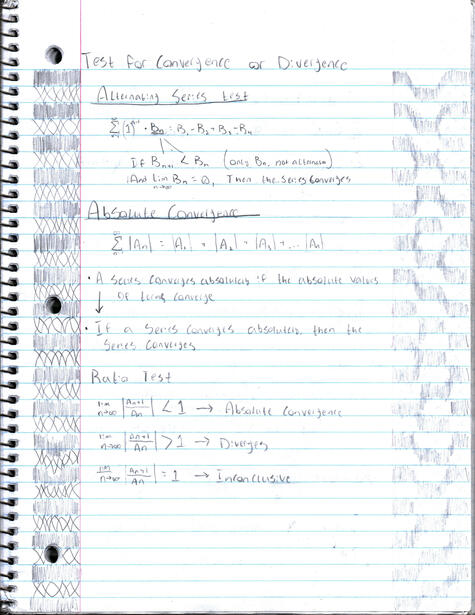 Test for Convergence or Divergence
Alternating Series test
∞ Σ n=1 (-1)ⁿ⁻¹ · Bn = B₁ - B₂ + B₃ - B₄
If Bn+1 < Bn (only Bn, not alternator)
And lim n→∞ Bn = 0, Then the Series Converges
Absolute Convergence
∞ Σ n=1 |An| = |A₁| + |A₂| + |A₃| + ... |An|
· A Series Converges absolutely if the absolute values
Of terms converge
· If a Series Converges absolutely, then the
Series Converges
Ratio Test
lim n→∞ |An+1/An| < 1 → Absolute Convergence
lim n→∞ |An+1/An| > 1 → Diverges
lim n→∞ |An+1/An| = 1 → Inconclusive